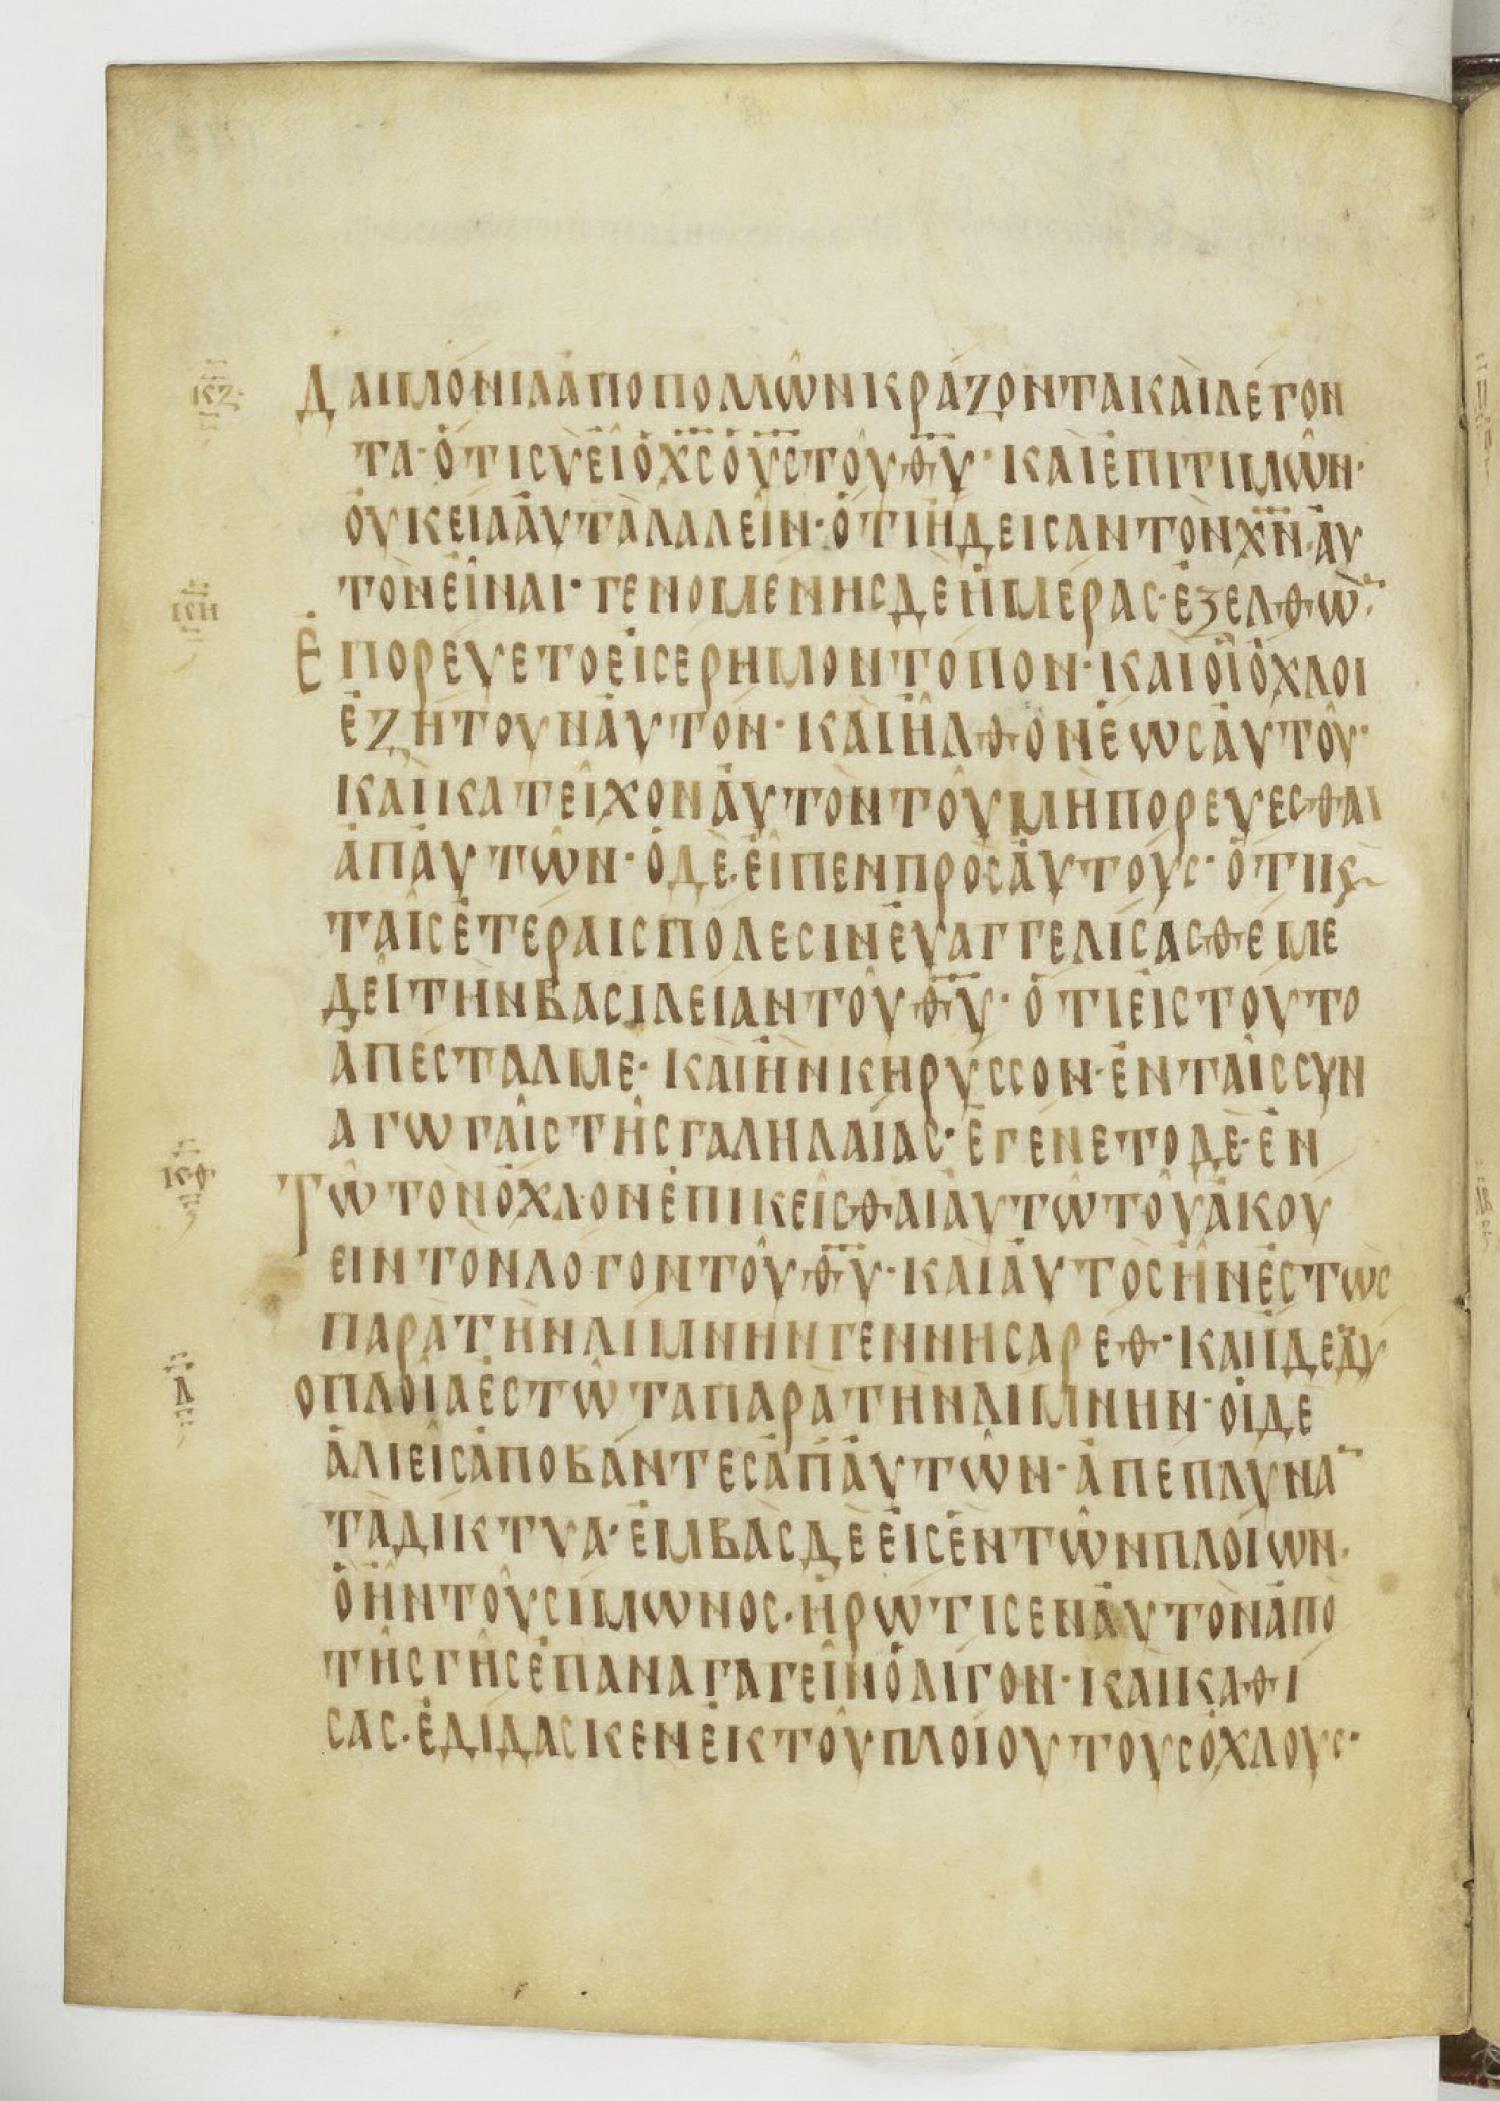 ΚΖ
ΔΑΙΜΟΝΙΑ ἈΠΟ ΠΟΛΛῶΝ ΚΡΆΖΟΝΤΑ ΚΑῚ ΛΈΓΟΝ
ΤΑ· ὍΤΙ ΣῪ ΕἾ Ὁ Χ̅Σ̅ Ὁ Υ̅Σ̅ ΤΟῦ Θ̅Υ̅· ΚΑῚ ἘΠΙΤΙΜῶΝ·
ΟὐΚ ΕἴΑ ΑὐΤᾺ ΛΑΛΕῖΝ· ὍΤΙ ἬΔΕΙΣΑΝ ΤῸΝ Χ̅Ν̅ Αὐ
ΤῸΝ ΕἾΝΑΙ· ΓΕΝΟΜΈΝΗΣ ΔΕ ἩΜΈΡΑΣ· ἘΞΕΛΘῺ̅
ΚΗ
ἘΠΟΡΕΎΕΤΟ ΕἰΣ ΕΡΗΜΟΝ ΤΌΠΟΝ· ΚΑΙ ΟἹ ὌΧΛΟΙ
ἘΖΉΤΟΥΝ ΑὐΤΌΝ· ΚΑῚ ἮΛΘΟΝ ἝΩΣ ΑὐΤΟῦ·
ΚΑῚ ΚΑΤΕῖΧΟΝ ΑὐΤῸΝ ΤΟῦ ΜῊ ΠΟΡΕΎΕΣΘΑΙ
ἈΠ ΑὐΤῶΝ· Ὁ ΔῈ ΕἾΠΕΝ ΠΡῸΣ ΑὐΤΟΎΣ· ὍΤΙ Ϗ
ΤΑῖΣ ἙΤΈΡΑΙΣ ΠΌΛΕΣΙΝ ΕὐΑΓΓΕΛΊΣΑΣΘΕ ΜΕ
ΔΕῖ ΤῊΝ ΒΑΣΙΛΕΙΑΝ ΤΟῦ Θ̅Υ̅· ὍΤΙ ΕἰΣ ΤΟΥΤΟ
ἈΠΕΣΤΑΛΜΕ· ΚΑΙ ἮΝ ΚΗΡΥΣΣΟΝ· ἘΝ ΤΑῖΣ ΣΥΝ
ΑΓΩΓΑῖΣ ΤῆΣ ΓΑΛΗΛΑΊΑΣ· ἘΓΈΝΕΤΟ ΔῈ· ἘΝ
ΚΘ
Τῶ ΤῸΝ ὌΧΛΟΝ ἘΠΙΚΕῖΣΘΑΙ ΑὐΤῶ ΤΟῦ ἈΚΟΥ
ΕΙΝ ΤΟΝ ΛΟΓΟΝ ΤΟῦ Θ̅Υ̅· ΚΑΙ ΑὐΤῸΣ ἮΝ ἙΣΤῺΣ
ΠΑΡᾺ ΤῊΝ ΛΊΜΝΗΝ ΓΕΝΝΗΣΑΡΕΘ· ΚΑΙ ἼΔΕ ΔΥ
Λ
Ο ΠΛΟῖΑ ἙΣΤῶΤΑ ΠΑΡᾺ ΤῊΝ ΛΊΜΝΗΝ· ΟἹ ΔΕ
ἉΛΙΕῖΣ ἈΠΟΒΆΝΤΕΣ ἈΠ ΑὐΤῶΝ· ἈΠΈΠΛΥΝΑ̅
ΤᾺ ΔΊΚΤΥΑ· ἘΜΒᾺΣ ΔῈ ΕἰΣ ἝΝ ΤῶΝ ΠΛΟΊΩΝ·
Ὃ ἮΝ ΤΟῦ ΣΊΜΩΝΟΣ· ἨΡΏΤΙΣΕΝ ΑὐΤῸΝ ἈΠῸ
ΤῆΣ ΓῆΣ ἘΠΑΝΑΓΑΓΕῖΝ ὈΛΊΓΟΝ· ΚΑῚ ΚΑΘΙ
ΣΑΣ· ἘΔΊΔΑΣΚΕΝ ἘΚ ΤΟῦ ΠΛΟΊΟΥ ΤΟῪΣ ὌΧΛΟΥΣ·